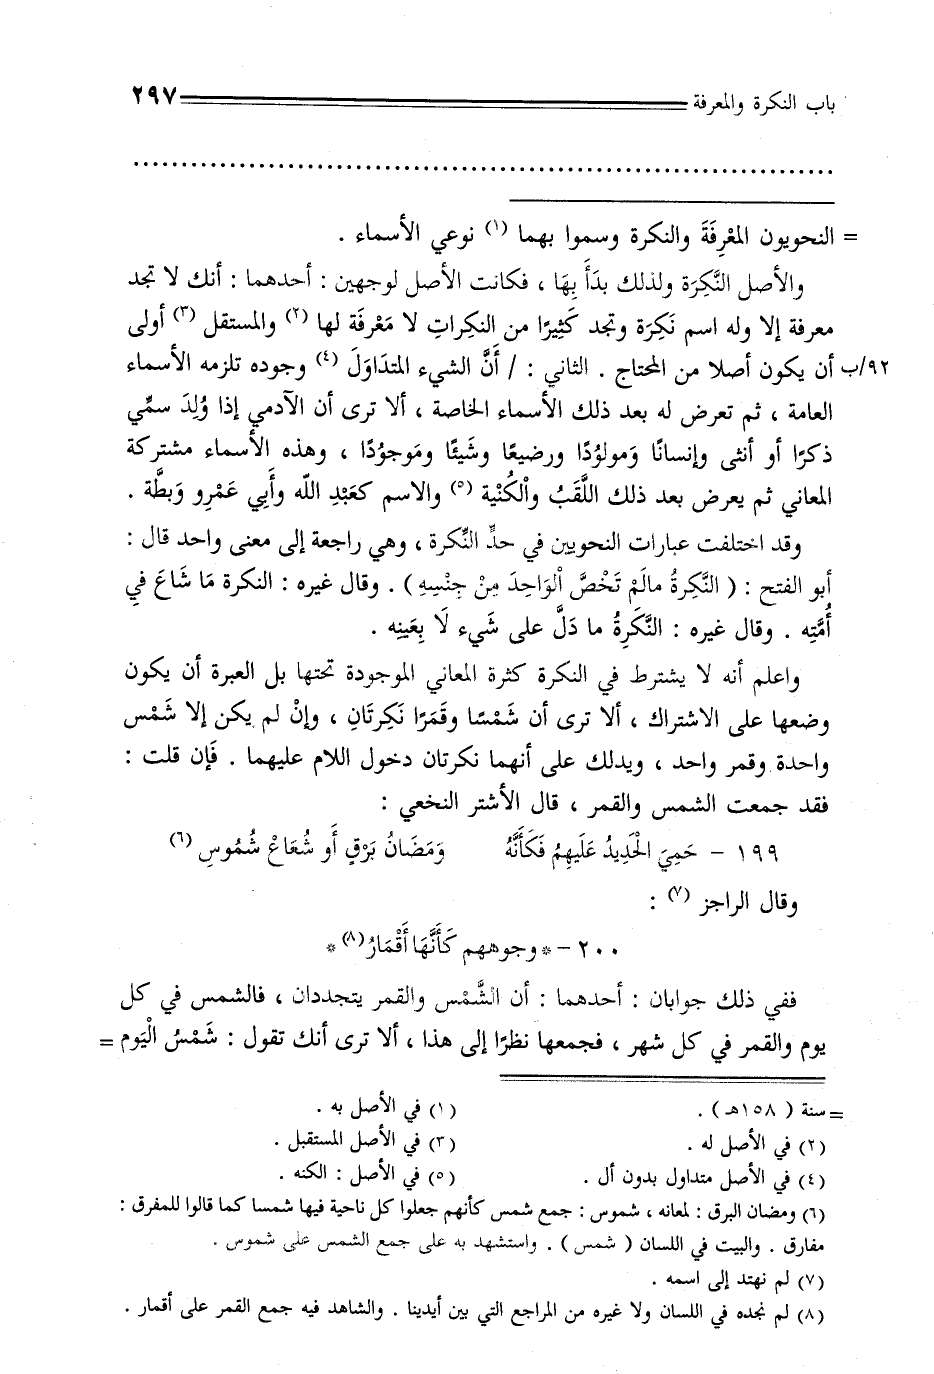 باب النكرة والمعرفة ٢٩٧
= النحويون المَعْرِفَةَ والنكرة وسموا بهما (١) نوعي الأسماء .
والأصل النَّكِرَة ولذلك بدَأَ بِهَا ، فكانت الأصل لوجهين : أحدهما : أنك لا تجد
معرفة إلا وله اسم نَكِرَة وتجد كَثِيرًا من النكِراتِ لا مَعْرفَة لها (٢) والمستقل (٣) أولى
٩٢/ب أن يكون أصلا من المحتاج . الثاني : / أَنَّ الشيء المتدَاوَلَ (٤) وجوده تلزمه الأسماء
العامة ، ثم تعرض له بعد ذلك الأسماء الخاصة ، ألا ترى أن الآدمي إذا وُلِدَ سمِّي
ذكرًا أو أنثى وإنسانًا وَمولوُدًا ورضيعًا وشَيئًا ومَوجوُدًا ، وهذه الأسماء مشتركة
المعاني ثم يعرض بعد ذلك اللَّقَبُ والْكُنْية (٥) والاسم كعَبْدِ الله وأَبِي عَمْرِو وَبطَّة .
وقد اختلفت عبارات النحويين في حدِّ النَّكِرة ، وهي راجعة إلى معنى واحد قال :
أبو الفتح : ( النَّكِرةُ مالَمْ تَخْصَّ الْوَاحِدَ مِنْ جِنْسِهِ ) . وقال غيره : النكرة مَا شَاعَ فيِ
أُمَّتِه . وقال غيره : النَّكَرِةُ ما دَلَّ على شَيء لَا بِعَينِه .
واعلم أنه لا يشترط في النكرة كثرة المعاني الموجودة تحتها بل العبرة أن يكون
وضعها على الاشتراك ، ألا ترى أن شَمْسًا وقَمَرًا نَكِرتَانِ ، وإنْ لم يكن إلا شَمْس
واحدة وقمر واحد ، ويدلك على أنهما نكرتان دخول اللام عليهما . فَإن قلت :
فقد جمعت الشمس والقمر ، قال الأشتر النخعي :
١٩٩ - حَمِيَ الْحَدِيدُ عَلَيهِمُ فَكَأَنَّهُ وَمَضَانُ بَرْقٍ أَو شُعَاعْ شُمُوسِ (٦)
وقال الراجز (٧) :
٢٠٠ - * وجوههم كَأَنَّهَا أَقْمَارُ (٨) *
ففي ذلك جوابان : أحدهما : أن الشَّمْس والقمر يتجددان ، فالشمس في كل
يوم والقمر في كل شهر ، فجمعها نظرًا إلى هذا ، ألا ترى أنك تقول : شَمْسُ الْيَوم =
= سنة ( ١٥٨هـ ) . (١) في الأصل به .
(٢) في الأصل له . (٣) في الأصل المستقبل .
(٤) في الأصل متداول بدون أل . (٥) في الأصل : الكنه .
(٦) ومضان البرق : لمعانه ، شموس : جمع شمس كأنهم جعلوا كل ناحية فيها شمسا كما قالوا للمفرق :
مفارق . والبيت في اللسان ( شمس ) . واستشهد به على جمع الشمس على شموس .
(٧) لم نهتد إلى اسمه .
(٨) لم نجده في اللسان ولا غيره من المراجع التي بين أيدينا . والشاهد فيه جمع القمر على أقمار .